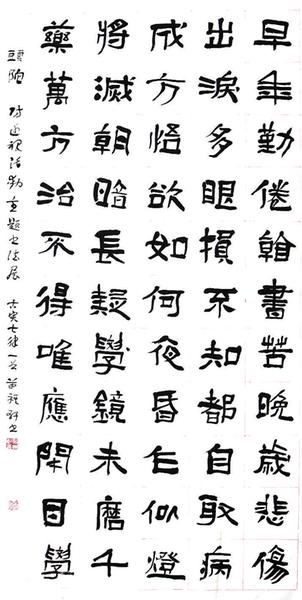 早年勤倦翰書苦晚歲悲傷
出淚多眼損不知都自取病
成方悟欲如何夜昏乍似燈
將滅朝暗長疑學鏡未磨千
藥萬方治不得唯應閉目學
頭陀 壬寅七律一首